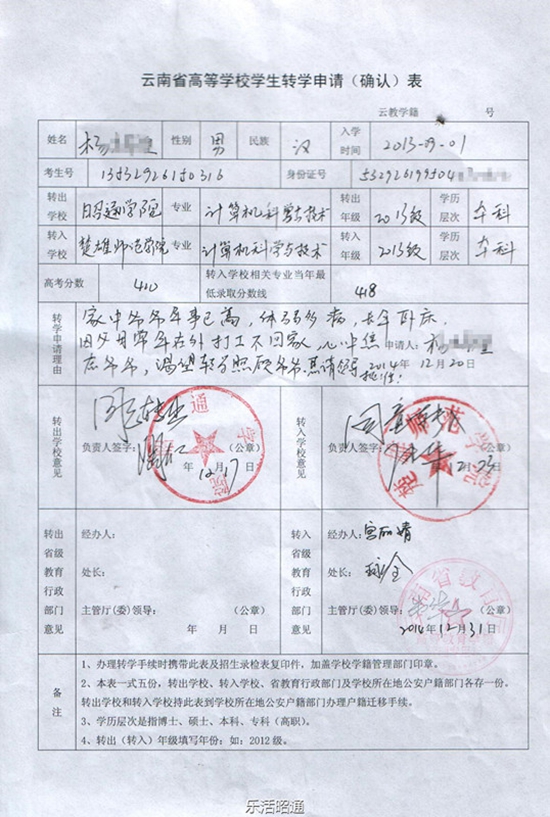 云南省高等学校学生转学申请（确认）表
云教学籍 号
姓名 杨 性别 男 民族 汉 入学时间 2013-09-01
考生号 身份证号
转出学校 昭通学院 专业 计算机科学与技术 转出年级 2013级 学历层次 本科
转入学校 楚雄师范学院 专业 计算机科学与技术 转入年级 2013级 学历层次 本科
高考分数 410 转入学校相关专业当年最低录取分数线 418
转学申请理由
家中爷爷年事已高，体弱多病，长年卧床
因父母常年在外打工不回家，心中焦 申请人：杨
虑爷爷，渴望转学照顾爷爷。恳请领导批准！ 2014年12月20日
转出学校意见 同意转出
负责人签字： （公章）
年12月17日
转入学校意见 同意
负责人签字： （公章）
12.23日
转出省级教育行政部门意见
经办人：
处长：
主管厅(委)领导： （公章）
年 月 日
转入省级教育行政部门意见
经办人：
处长：
主管厅(委)领导： （公章）
2014年12月31日
备注
1、办理转学手续时携带此表及招生录检表复印件，加盖学校学籍管理部门印章。
2、本表一式五份，转出学校、转入学校、省教育行政部门及学校所在地公安户籍部门各存一份。
转出学校和转入学校持此表到学校所在地公安户籍部门办理户籍迁移手续。
3、学历层次是指博士、硕士、本科、专科（高职）。
4、转出（转入）年级填写年份：如：2012级。
乐活昭通